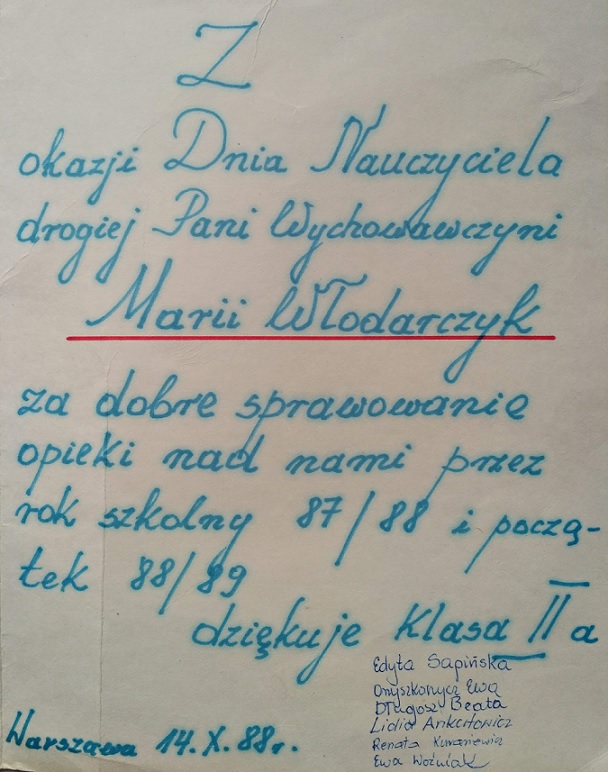 Z
okazji Dnia Nauczyciela
drogiej Pani Wychowawczyni
Marii Włodarczyk
za dobre sprawowanie
opieki nad nami przez
rok szkolny 87/88 i począ-
tek 88/89
dziękuje klasa II a
Edyta Sapińska
Ewa
Długosz Beata
Lidia
Renata
Ewa Woźniak
Warszawa 14.X.88r.